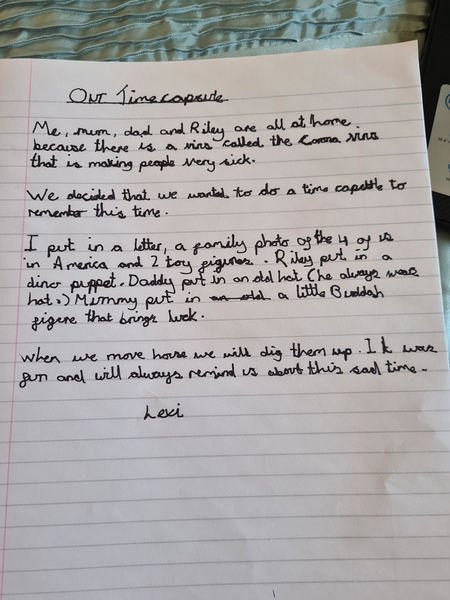 Our Timecapsule
Me, mum, dad and Riley are all at home
because there is a virus called the Corona virus
that is making people very sick.
We decided that we wanted to do a time capstle to
remember this time.
I put in a letter, a family photo of the 4 of us
in America and 2 toy figures. Riley put in a
dino puppet. Daddy put in an old hat (he always wears
hat.) Mummy put in an old a little Buddah
figere that brings luck.
When we move house we will dig them up. It was
fun and will always remind us about this sad time.
Lexi